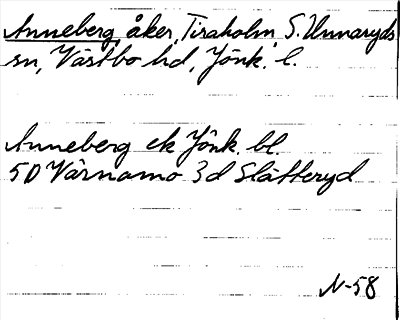 Anneberg, åker, Tiraholm S. Unnaryds
sn, Västbo hd, Jönk. l.
Anneberg ek Jönk. bl.
5D Värnamo 3d Slätteryd
N-58